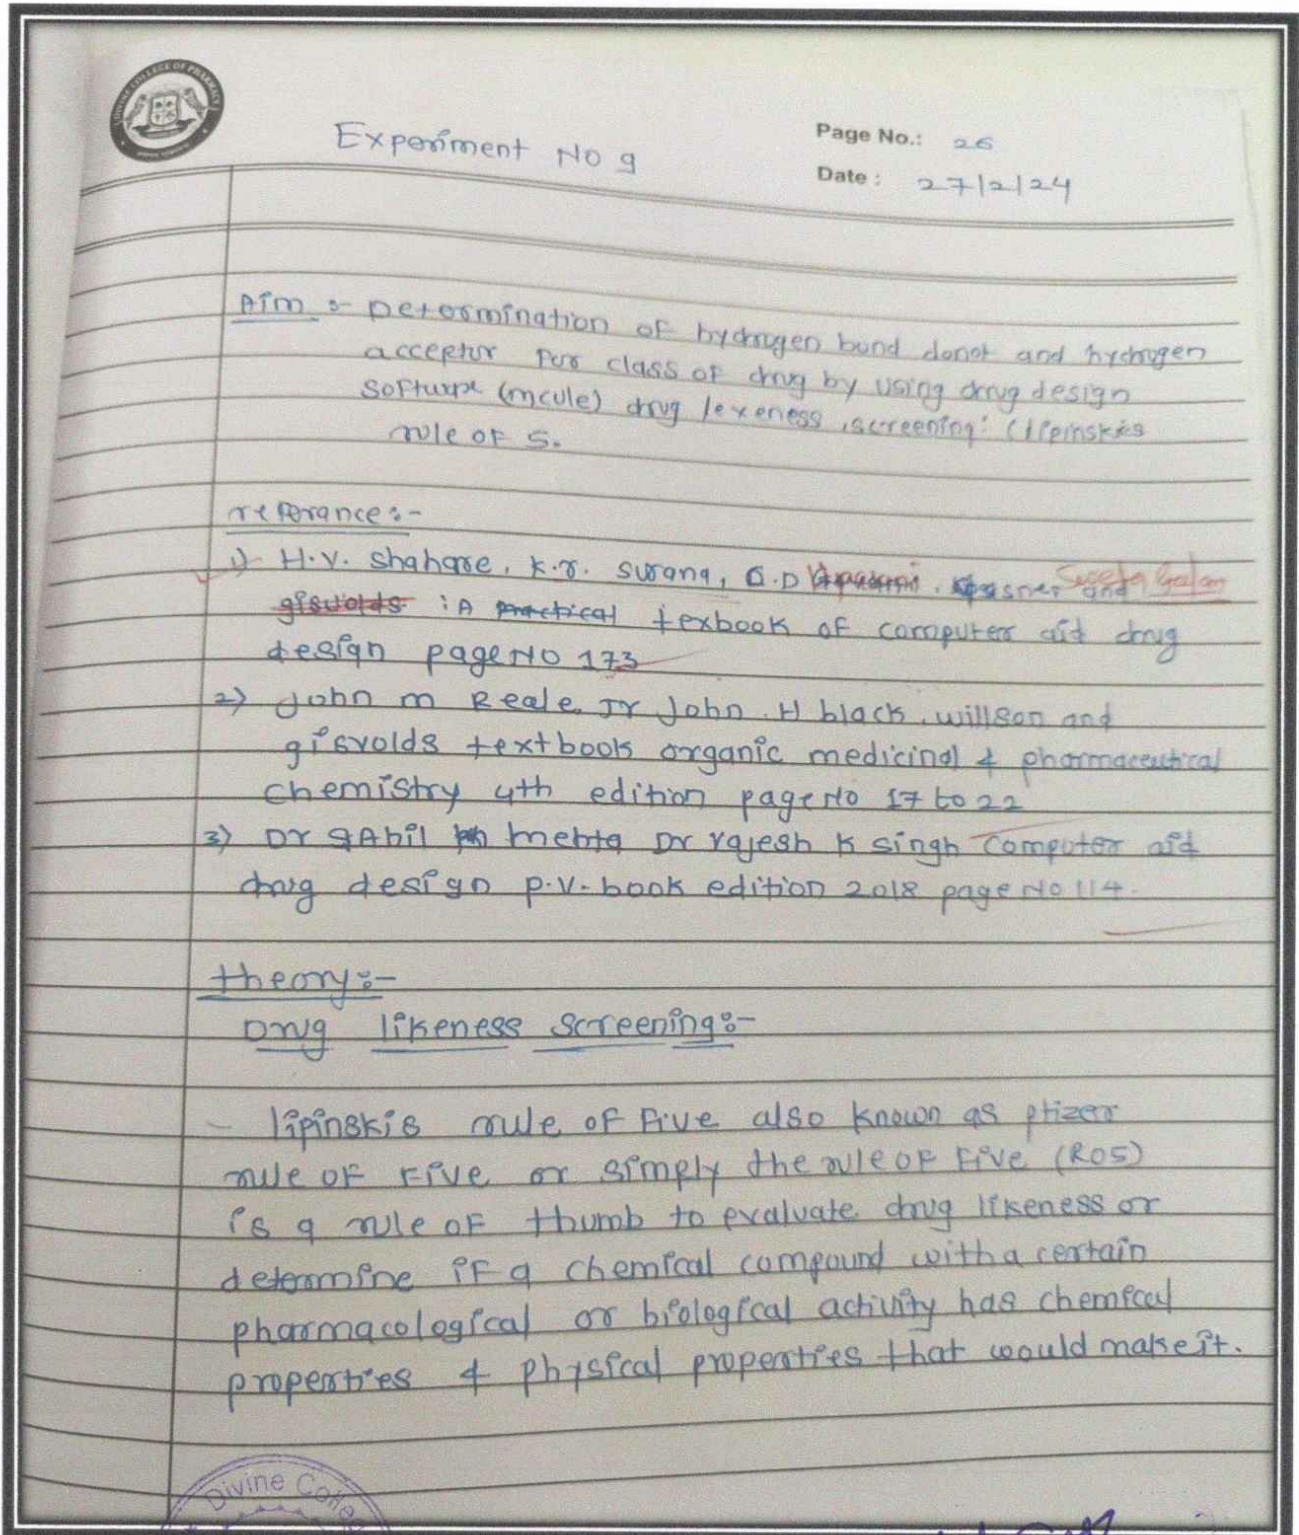 DIVINE COLLEGE OF PHARMACY
Experiment No 9
Page No.: 26
Date: 27/2/24
Aim :- Determination of hydrogen bond donot and hydrogen
acceptor for class of drug by using drug design
software (mcule) drug lexeness screening: (lipinskis
rule of 5.
referance:-
1) H.V. Shahare, K.r. Surana,
: A practical texbook of computer aid drug
design page No 173
2) John m Beale Jr John H black, willson and
gisvolds textbook organic medicinal & pharmaceutical
chemistry 4th edition page No 17 to 22
3) Dr mehta Dr rajesh K singh Computer aid
drug design p.v. book edition 2018 page No 114.
theory:-
Drug likeness screening:-
- lipinskis rule of five also known as pfizer
rule of Five or simply the rule of Five (ROS)
is a rule of thumb to evaluate drug likeness or
determine if a chemical compound with a certain
pharmacological or biological activity has chemical
properties & physical properties that would make it.
Divine Colle